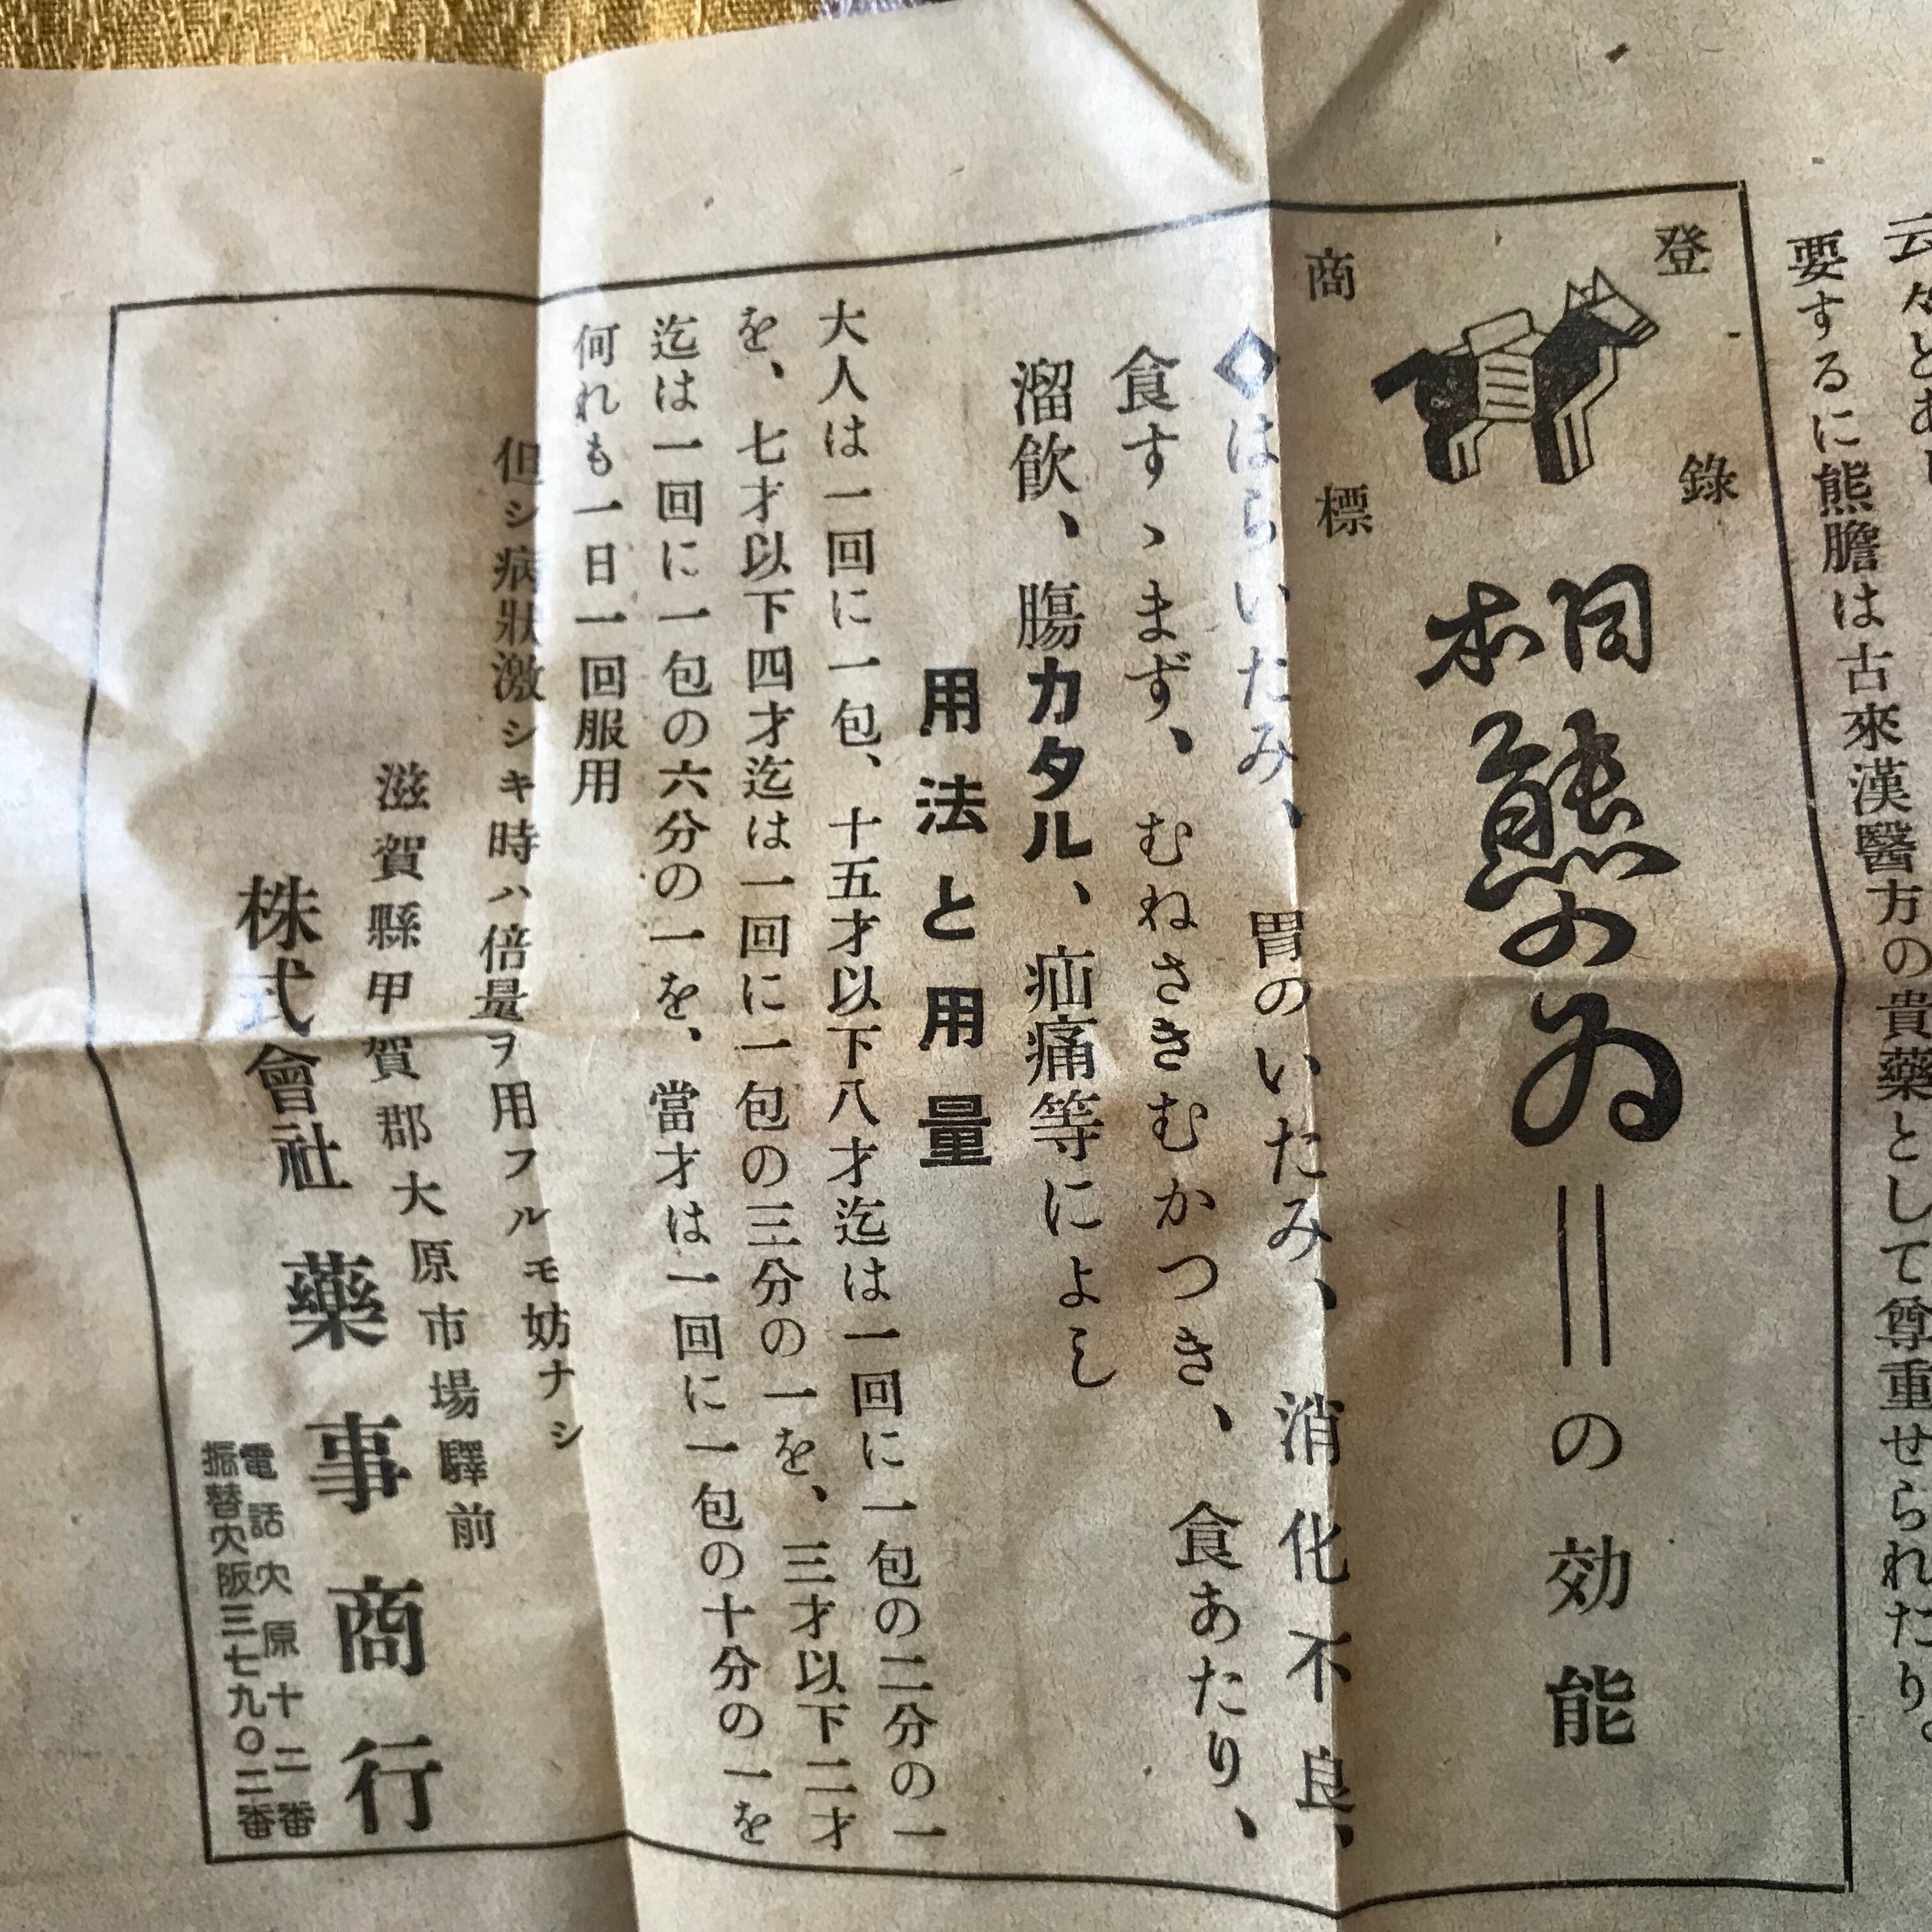 云々とあり
要するに熊膽は古來漢醫方の貴藥として尊重せられたり。
登錄
商標
本
熊のゐ
の効能
◇はらいたみ、胃のいたみ、消化不良、
食すゝまず、むねさきむかつき、食あたり、
溜飲、腸カタル、疝痛等によし
用法と用量
大人は一回に一包、十五才以下八才迄は一回に一包の二分の一
を、七才以下四才迄は一回に一包の三分の一を、三才以下二才
迄は一回に一包の六分の一を、當才は一回に一包の十分の一を
何れも一日一回服用
但シ病狀激シキ時ハ倍量ヲ用フルモ妨ナシ
滋賀縣甲賀郡大原市場驛前
株式會社 藥事商行
電話大原十二番
振替大阪三七九〇二番